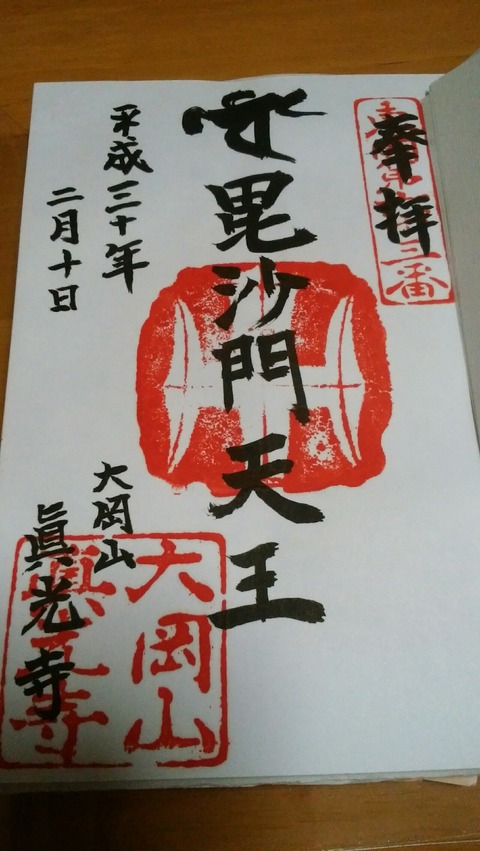 奉拝
三番
毘沙門天王
平成三十年
二月十日
大岡山
眞光寺
大岡山